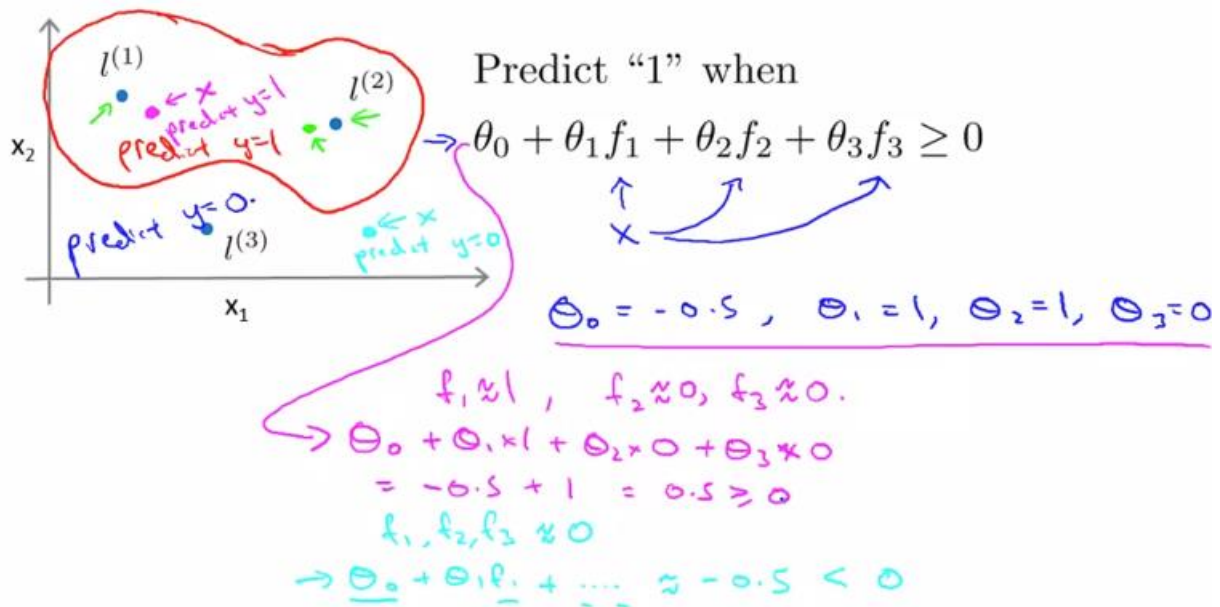 l^{(1)}
l^{(2)}
← x
predict y=1
predict y=1
x₂
predict y=0.
l^{(3)}
← x
predict y=0
x₁
Predict “1” when
→ θ₀ + θ₁f₁ + θ₂f₂ + θ₃f₃ ≥ 0
x
θ₀ = -0.5 , θ₁ = 1, θ₂ = 1, θ₃ = 0
f₁ ≈ 1 , f₂ ≈ 0, f₃ ≈ 0.
→ θ₀ + θ₁ × 1 + θ₂ × 0 + θ₃ × 0
= -0.5 + 1 = 0.5 ≥ 0
f₁, f₂, f₃ ≈ 0
→ θ₀ + θ₁f₁ + .... ≈ -0.5 < 0